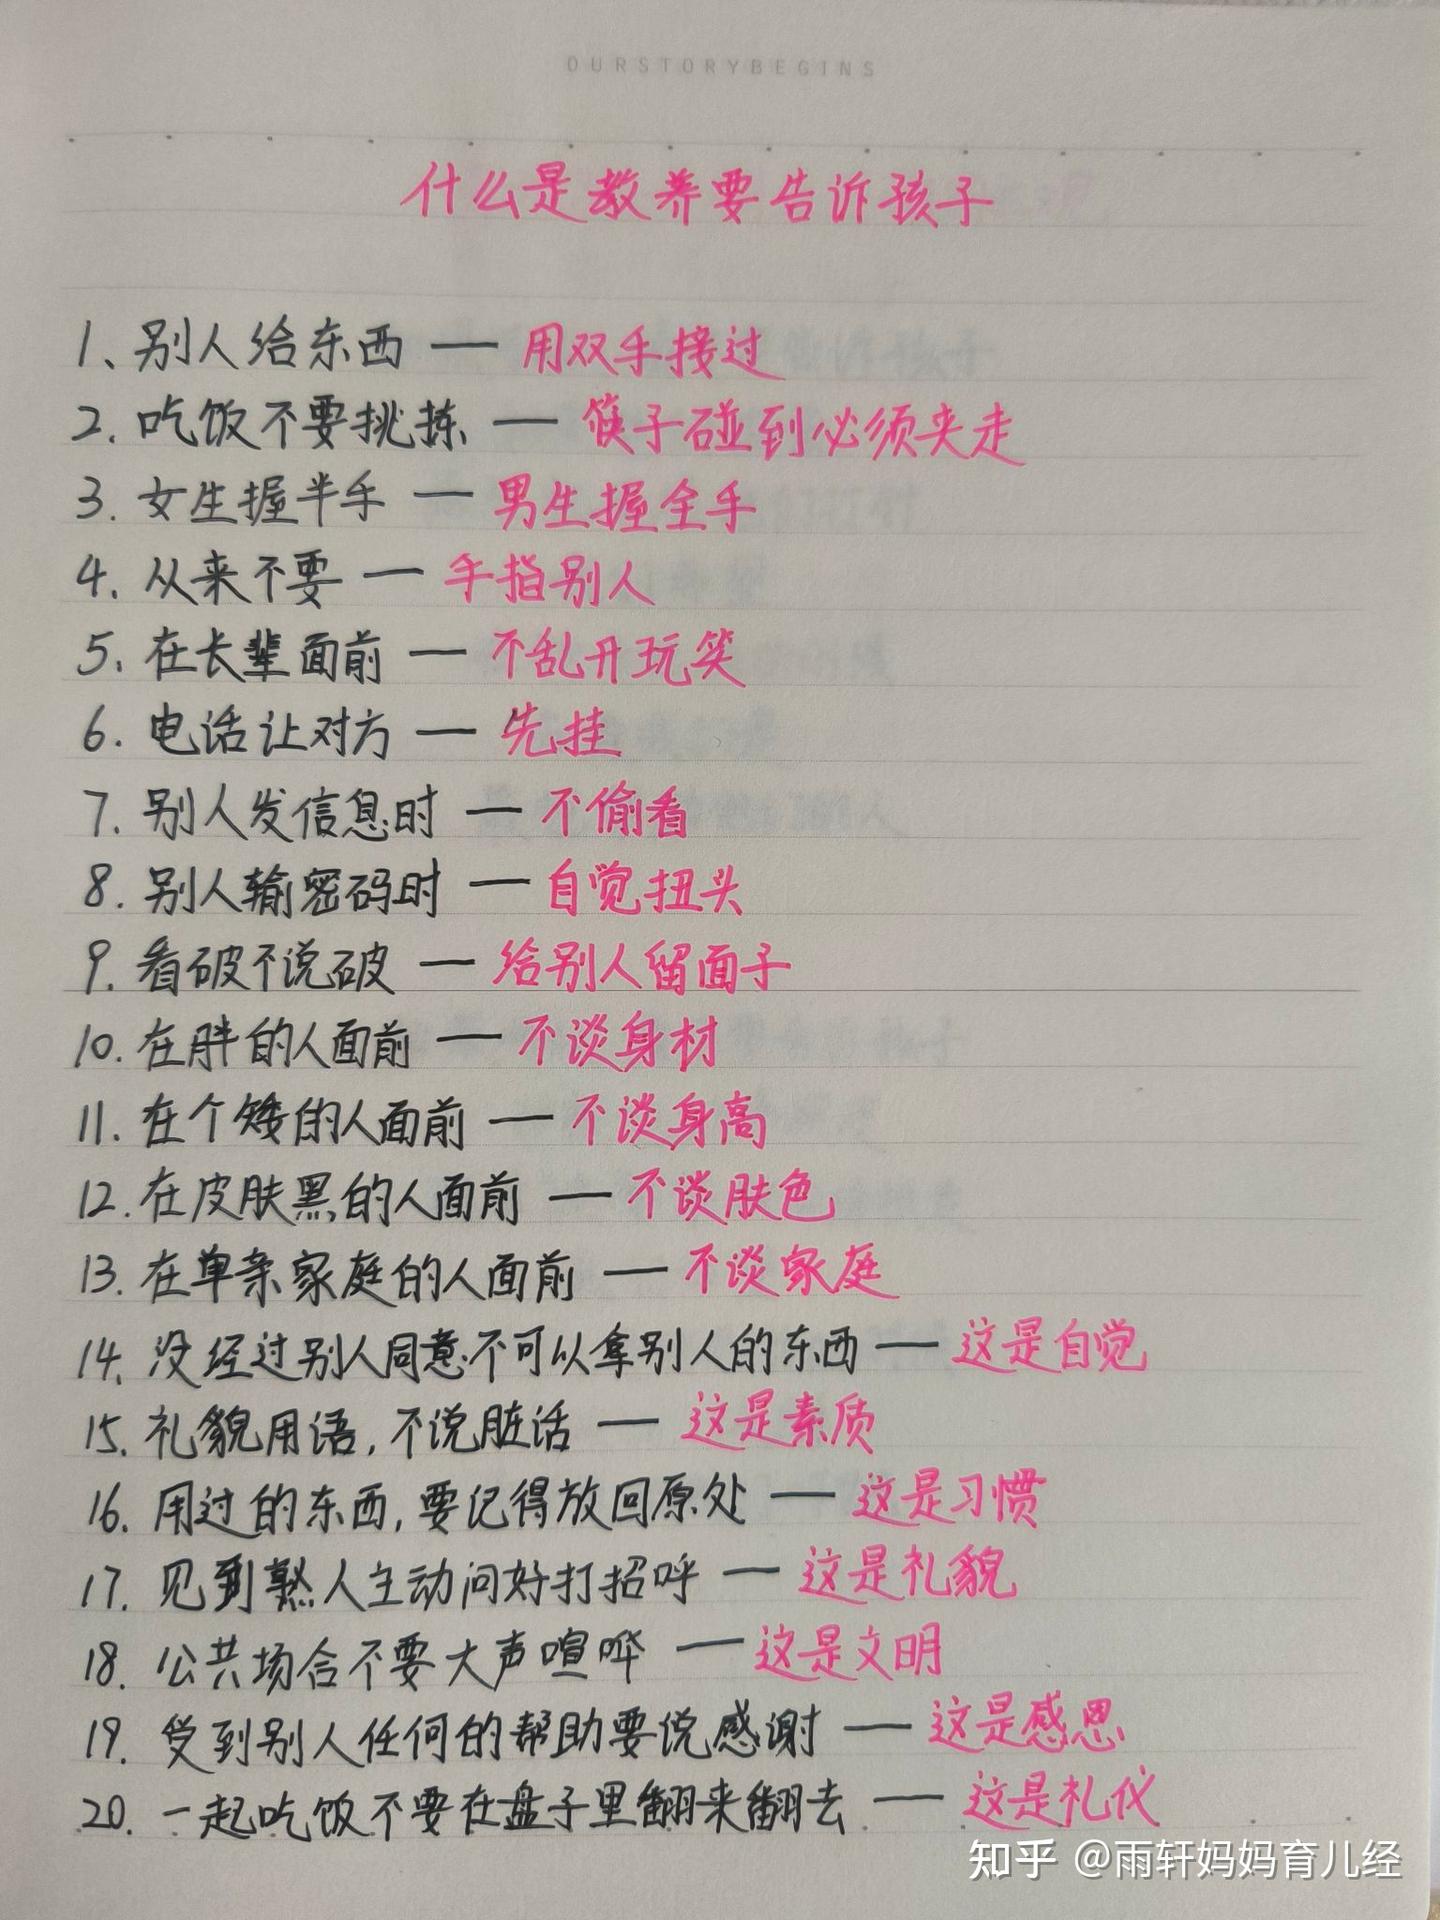 OURSTORYBEGINS
什么是教养要告诉孩子
1、别人给东西 — 用双手接过
2. 吃饭不要挑拣 — 筷子碰到必须夹走
3. 女生握半手 — 男生握全手
4. 从来不要 — 手指别人
5、在长辈面前 — 不乱开玩笑
6. 电话让对方 — 先挂
7. 别人发信息时 — 不偷看
8. 别人输密码时 — 自觉扭头
9. 看破不说破 — 给别人留面子
10. 在胖的人面前 — 不谈身材
11. 在个矮的人面前 — 不谈身高
12. 在皮肤黑的人面前 — 不谈肤色
13. 在单亲家庭的人面前 — 不谈家庭
14、没经过别人同意不可以拿别人的东西 — 这是自觉
15. 礼貌用语，不说脏话 — 这是素质
16. 用过的东西，要记得放回原处 — 这是习惯
17. 见到熟人主动问好打招呼 — 这是礼貌
18. 公共场合不要大声喧哗 — 这是文明
19. 受到别人任何的帮助要说感谢 — 这是感恩
20. 一起吃饭不要在盘子里翻来翻去 — 这是礼仪
知乎 @雨轩妈妈育儿经